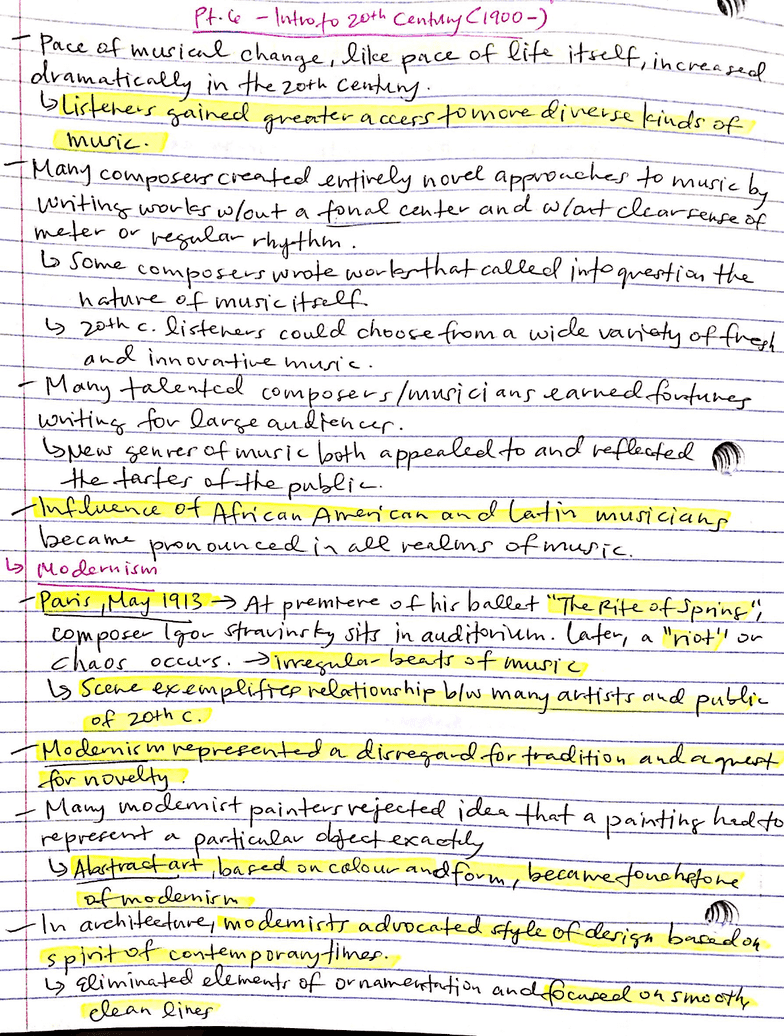 Pt. 6 - Intro to 20th Century (1900-)
- Pace of musical change, like pace of life itself, increased
dramatically in the 20th century.
↳ Listeners gained greater access to more diverse kinds of
music.
- Many composers created entirely novel approaches to music by
writing works w/out a tonal center and w/out clear sense of
meter or regular rhythm.
↳ Some composers wrote works that called into question the
nature of music itself.
↳ 20th c. listeners could choose from a wide variety of fresh
and innovative music.
- Many talented composers/musicians earned fortunes
writing for large audiences.
↳ New genres of music both appealed to and reflected
the tastes of the public.
- Influence of African American and Latin musicians
became pronounced in all realms of music.
↳ Modernism
- Paris, May 1913 → At premiere of his ballet "The Rite of Spring",
composer Igor Stravinsky sits in auditorium. Later, a "riot" or
chaos occurs. → irregular beats of music
↳ Scene exemplifies relationship b/w many artists and public
of 20th c.
- Modernism represented a disregard for tradition and a quest
for novelty.
- Many modernist painters rejected idea that a painting had to
represent a particular object exactly
↳ Abstract art, based on colour and form, became touchstone
of modernism
- In architecture, modernists advocated style of design based on
spirit of contemporary times.
↳ Eliminated elements of ornamentation and focused on smooth,
clean lines